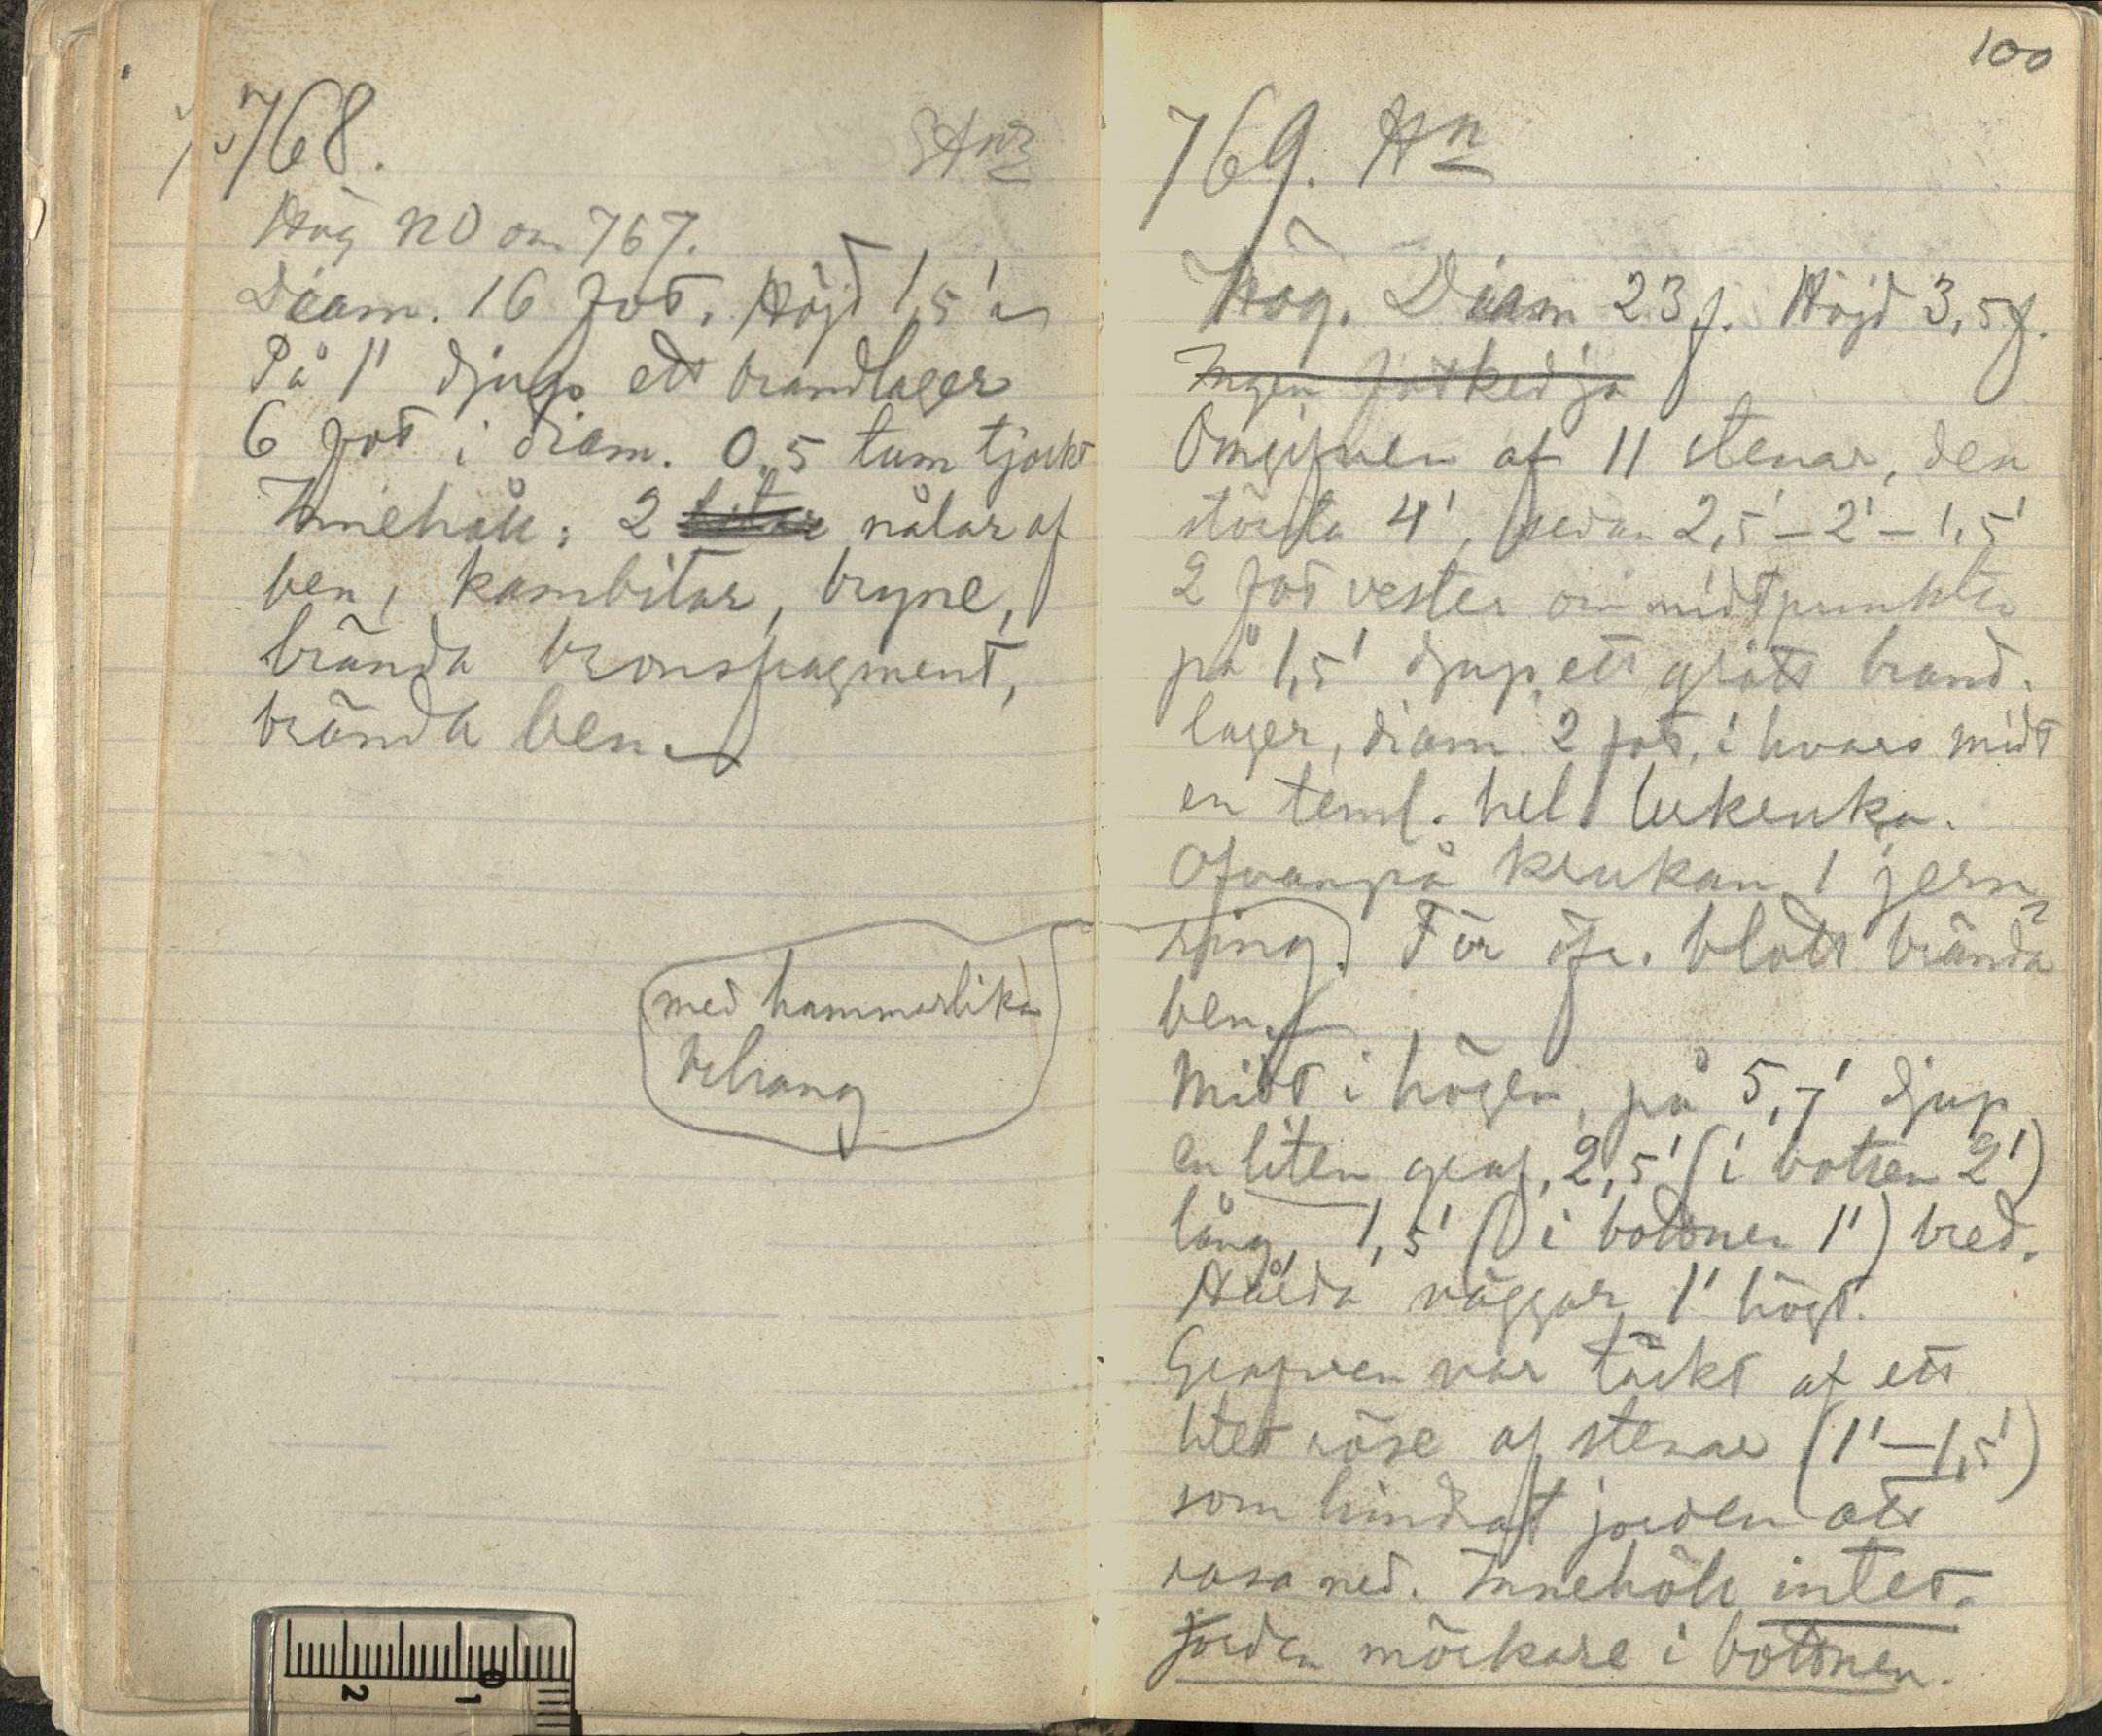 768.
Hög NO om 767.
Diam. 16 fot. Höjd 1,5'
På 1' djup ett brandlager
6 fot i diam. 0,5 tum tjockt
Innehöll: 2 bitar nålar af
ben, kambitar, bryne,
brända bronsfragment,
brända ben.
med hammarlika
behäng
100
769. Hn
Hög. Diam 23 f. Höjd 3,5 f.
Ingen fotkedja
Omgifven af 11 stenar, den
största 4', sedan 2,5' – 2' – 1,5'
2 fot vester om midtpunkten
på 1,5' djup, ett grått brand-
lager, diam. 2 fot, i hvars midt
en teml. hel lerkruka.
Ofvanpå krukan 1 jern-
ring. För öfr. blott brända
ben.
Midt i högen, på 5,7' djup
en liten graf, 2,5' (i botten 2')
lång, 1,5' (i bottnen 1') bred.
Hårda väggar 1' högt.
Grafven var täckt af ett
litet röse af stenar (1'–1,5')
som hindrat jorden att
rasa ned. Innehöll intet.
Jorden mörkare i bottnen.